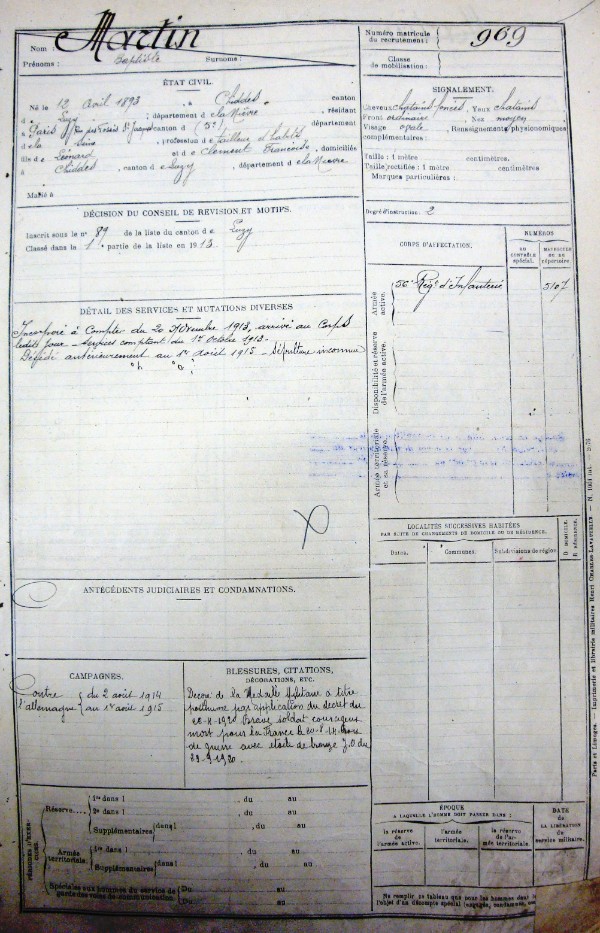 Nom : Martin
Prénoms : Baptiste Surnoms :
Numéro matricule du recrutement : 969
Classe de mobilisation :
ÉTAT CIVIL.
Né le 12 Avril 1893, à Chiddes, canton
d Luzy, département d e la Nièvre, résidant
à Paris St Jacques canton d (5e) département
d e la Seine, profession d e Tailleur d'habits
fils d e Léonard et d e Clément Françoise, domiciliés
à Chiddes, canton d e Luzy, département d e la Nièvre
Marié à
SIGNALEMENT.
Cheveux Chatains foncés Yeux Chatains
Front ordinaire Nez moyen
Visage ovale Renseignements physionomiques
complémentaires :
Taille : 1 mètre centimètres.
Taille rectifiée : 1 mètre centimètres
Marques particulières :
Degré d'instruction : 2
DÉCISION DU CONSEIL DE REVISION ET MOTIFS.
Inscrit sous le n° 89 de la liste du canton d e Luzy
Classé dans le 1e partie de la liste en 1913.
CORPS D'AFFECTATION.
NUMÉROS
AU CONTRÔLE spécial.
MATRICULE OU AU répertoire.
Armée active.
56e Régt d'Infanterie 5107
Disponibilité et réserve de l'armée active.
Armée territoriale et sa réserve.
DÉTAIL DES SERVICES ET MUTATIONS DIVERSES
Incorporé à Compter du 20 Novembre 1913, arrivé au Corps
ledit jour - services comptant du 1er Octobre 1913 -
Décédé antérieurement au 1er Août 1915 - Sépulture inconnue
LOCALITÉS SUCCESSIVES HABITÉES
PAR SUITE DE CHANGEMENTS DE DOMICILE OU DE RÉSIDENCE.
Dates. Communes. Subdivisions de région D. DOMICILE. R. RÉSIDENCE.
ANTÉCÉDENTS JUDICIAIRES ET CONDAMNATIONS.
CAMPAGNES.
Contre l'allemagne { du 2 août 1914
au 1er août 1915
BLESSURES, CITATIONS, DÉCORATIONS, ETC.
Décoré de la Medaille Militaire à titre
posthume par application du décret du
Brave soldat courageux
mort pour la France le 20-8-14 Croix
de guerre avec étoile de bronze J.O. du
1920.
PÉRIODES D'EXERCICES.
Réserve.... 1re dans l , du au
2e dans l , du au
Supplémentaires dans l , du au
Armée territoriale. 1re dans l , du au
Supplémentaires dans l , du au
Spéciales aux hommes du service de garde des voies de communication. Du au
Du au
ÉPOQUE
A LAQUELLE L'HOMME DOIT PASSER DANS :
la réserve de l'armée active.
l'armée territoriale.
la réserve de l'armée territoriale.
DATE DE LA LIBÉRATION du service militaire.
Ne remplir ce tableau que pour les hommes dont
l'objet d'un décompte spécial (engagés, condamnés,
Paris et Limoges. — Imprimerie et librairie militaires Henri CHARLES-LAVAUZELLE